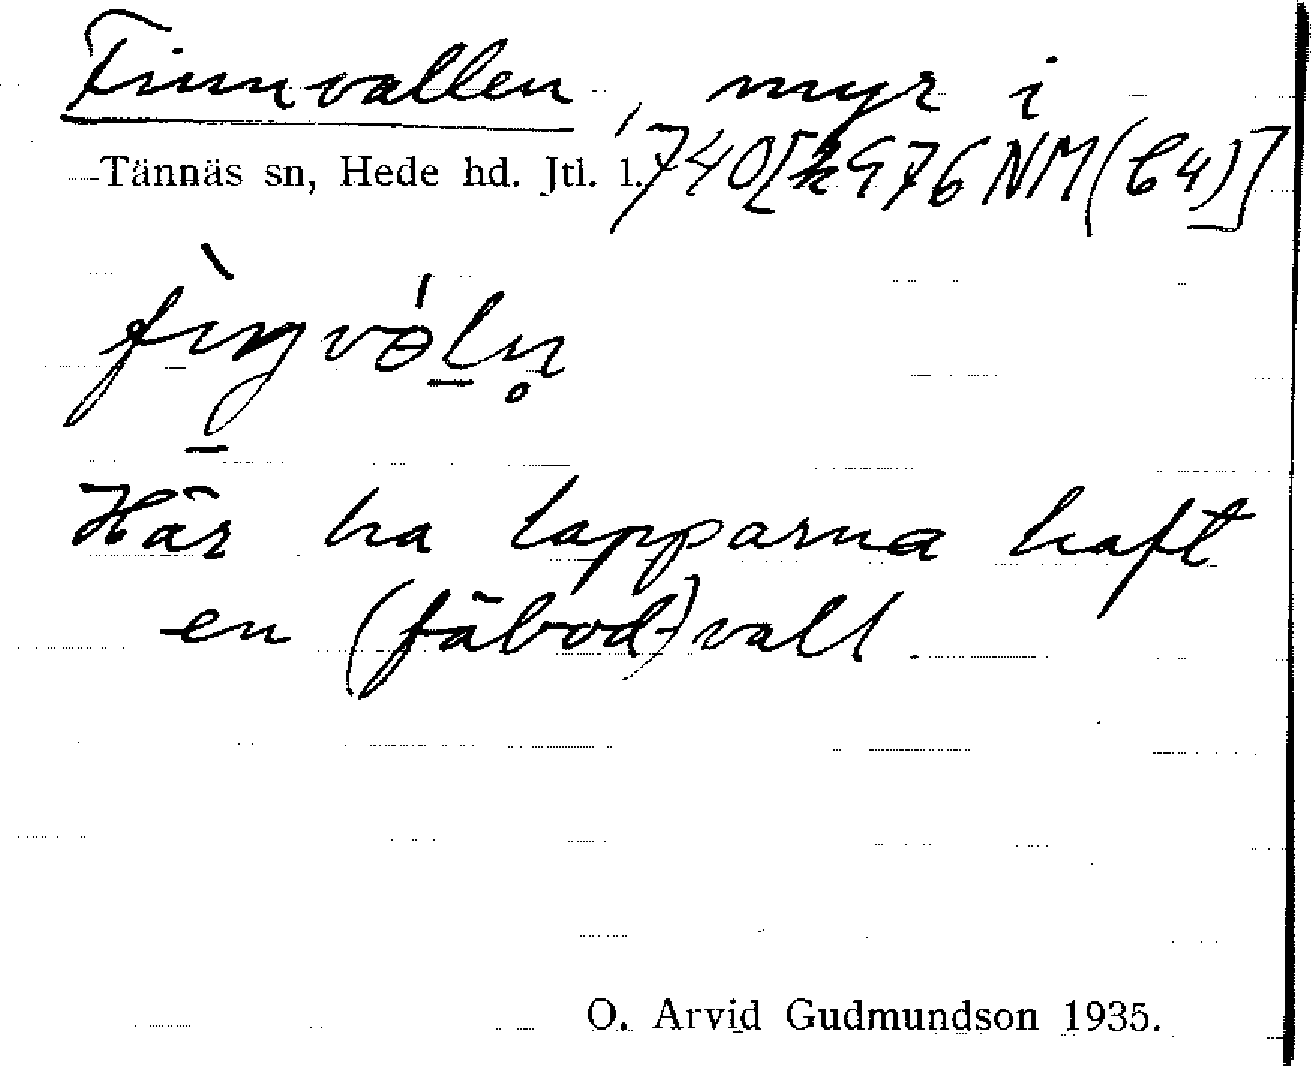 Finnvallen, myr i
Tännäs sn, Hede hd. Jtl. l. 740[k976NM(b4)]
Här ha lapparna haft
en (fäbod-)vall.
O. Arvid Gudmundson 1935.